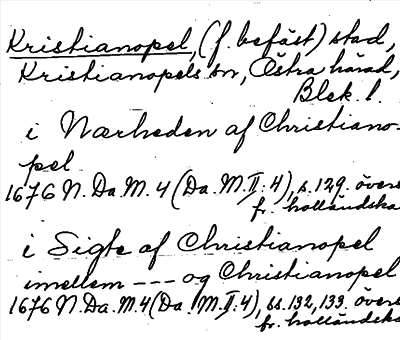 Kristianopel, (f. befäst) stad,
Kristianopels sn, Östra härad,
Blek. l.
i Nærheden af Christiano-
pel
1676 N. Da. M. 4 (Da. M. II: 4), s. 129. övers.
fr. holländska
i Sigte af Christianopel
imellem --- og Christianopel
1676 N. Da. M. 4 (Da. M. II: 4), ss. 132, 133. övers.
fr. holländska